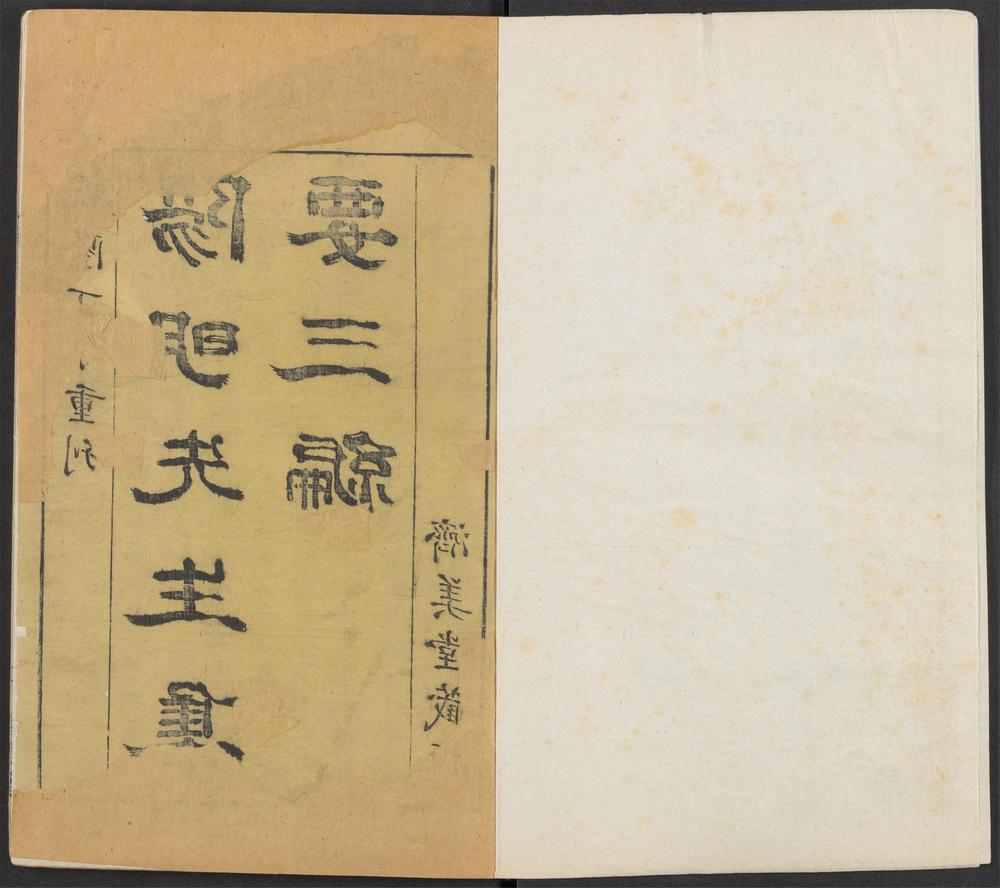 重刊
陽明先生集
要三編
濟美堂藏